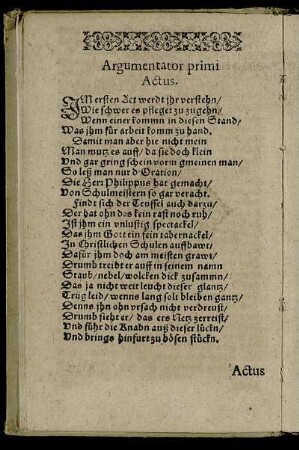 Argumentator primi
Actus.
IM ersten Act werdt jhr verstehn/
Wie schwer es pfleget zu zugehn/
Wenn einer komm̃ in diesen Stand/
Was jhm für arbeit komm zu hand.
Damit man aber hie nicht mein
Man mutz es auff/ da sie doch klein
Vnd gar gring schein vorm gmeinen man/
So leß man nur d'Oration/
Die Herr Philippus hat gemacht/
Von Schulmeistern so gar veracht.
Findt sich der Teuffel auch darzu/
Der hat ohn das kein rast noch ruh/
Ist jhm ein vnlustig spectackel/
Das jhm Gott ein sein tabernackel/
In Christlichen Schulen auffbawt
Dafür jhm doch am meisten grawt/
Drumb treibt er auff in seinem namn
Staub/ nebel/ wolcken dick zusammn/
Das ja nicht weit leucht dieser glantz/
Trüg leid/ wenns lang solt bleiben gantz/
Denns jhn ohn vrsach nicht verdreust/
Drumb sieht er/ das ers Netz zerreist/
Vnd führ die Knabn auß dieser lückn/
Vnd brings hinfurt zu bösen stückn.
Actus